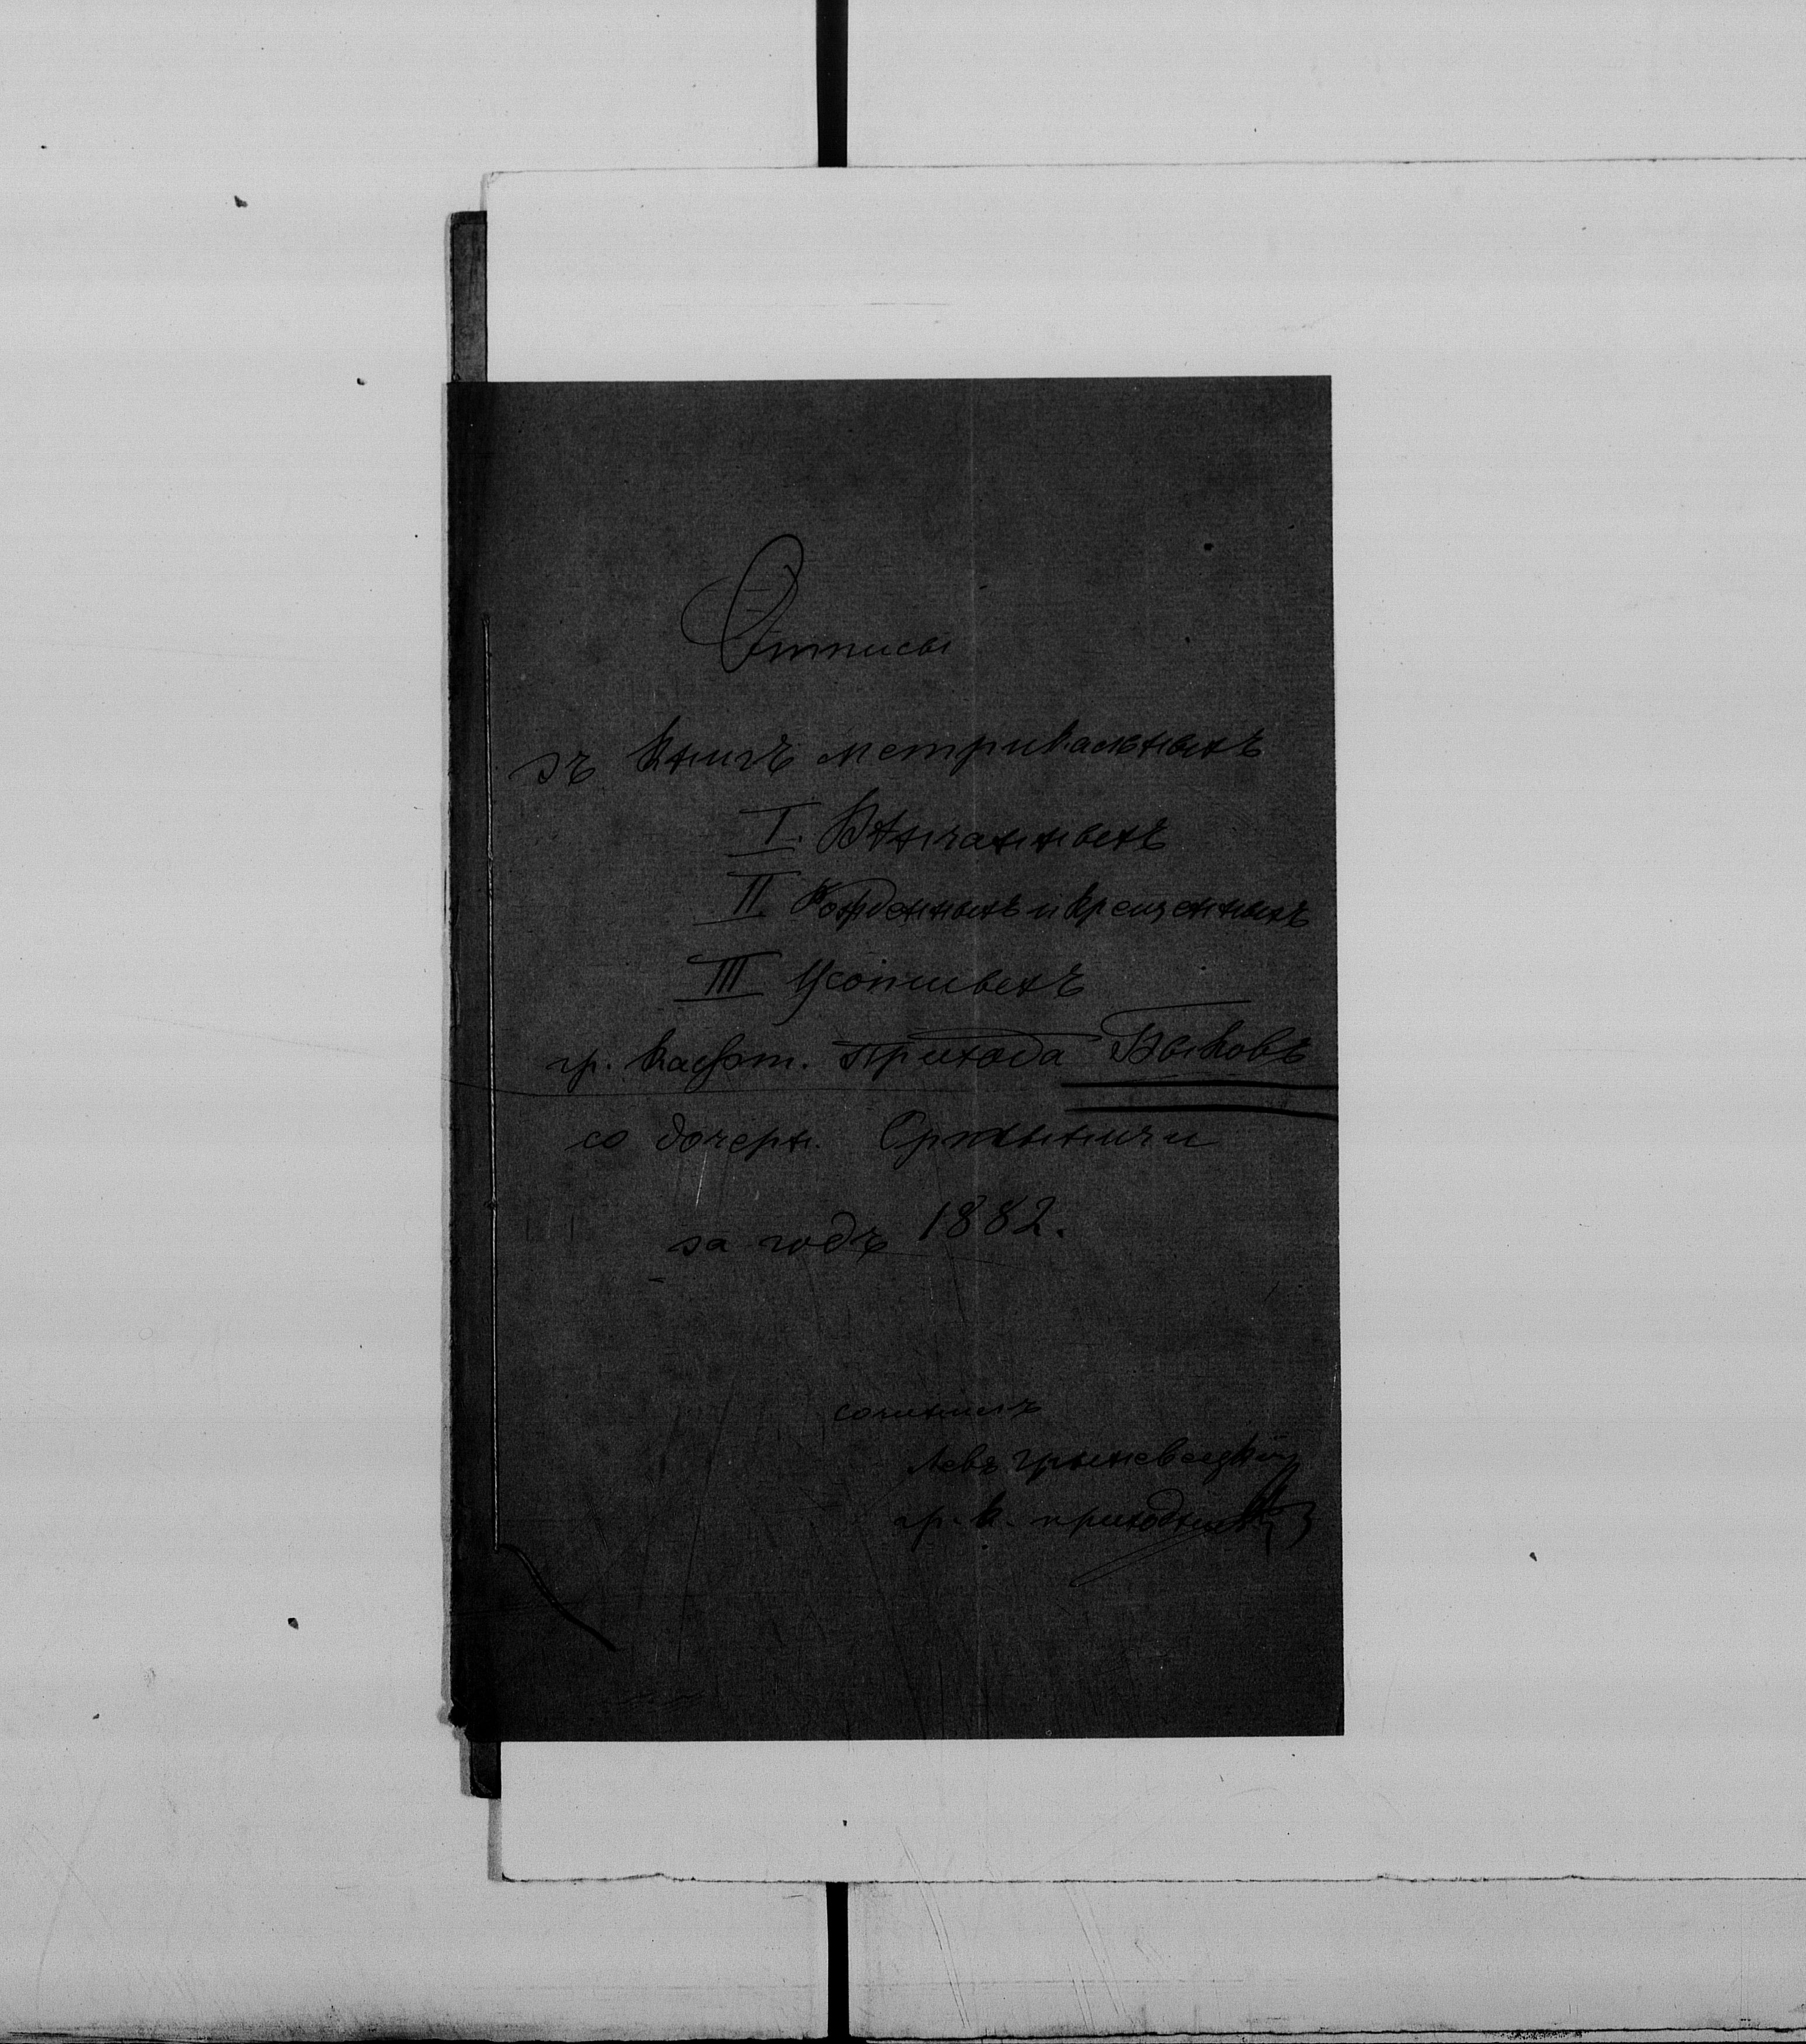 Отписы
зъ книгъ метрикальныхъ
I. Вѣнчанныхъ
II. Рожденныхъ и крещенныхъ
III Усопшихъ
гр. каѳот. прихода Быковъ
со дочерн. Оржыничи
за годъ 1882.
сочинилъ
Левъ Грыневецкій
гр. к. приходник